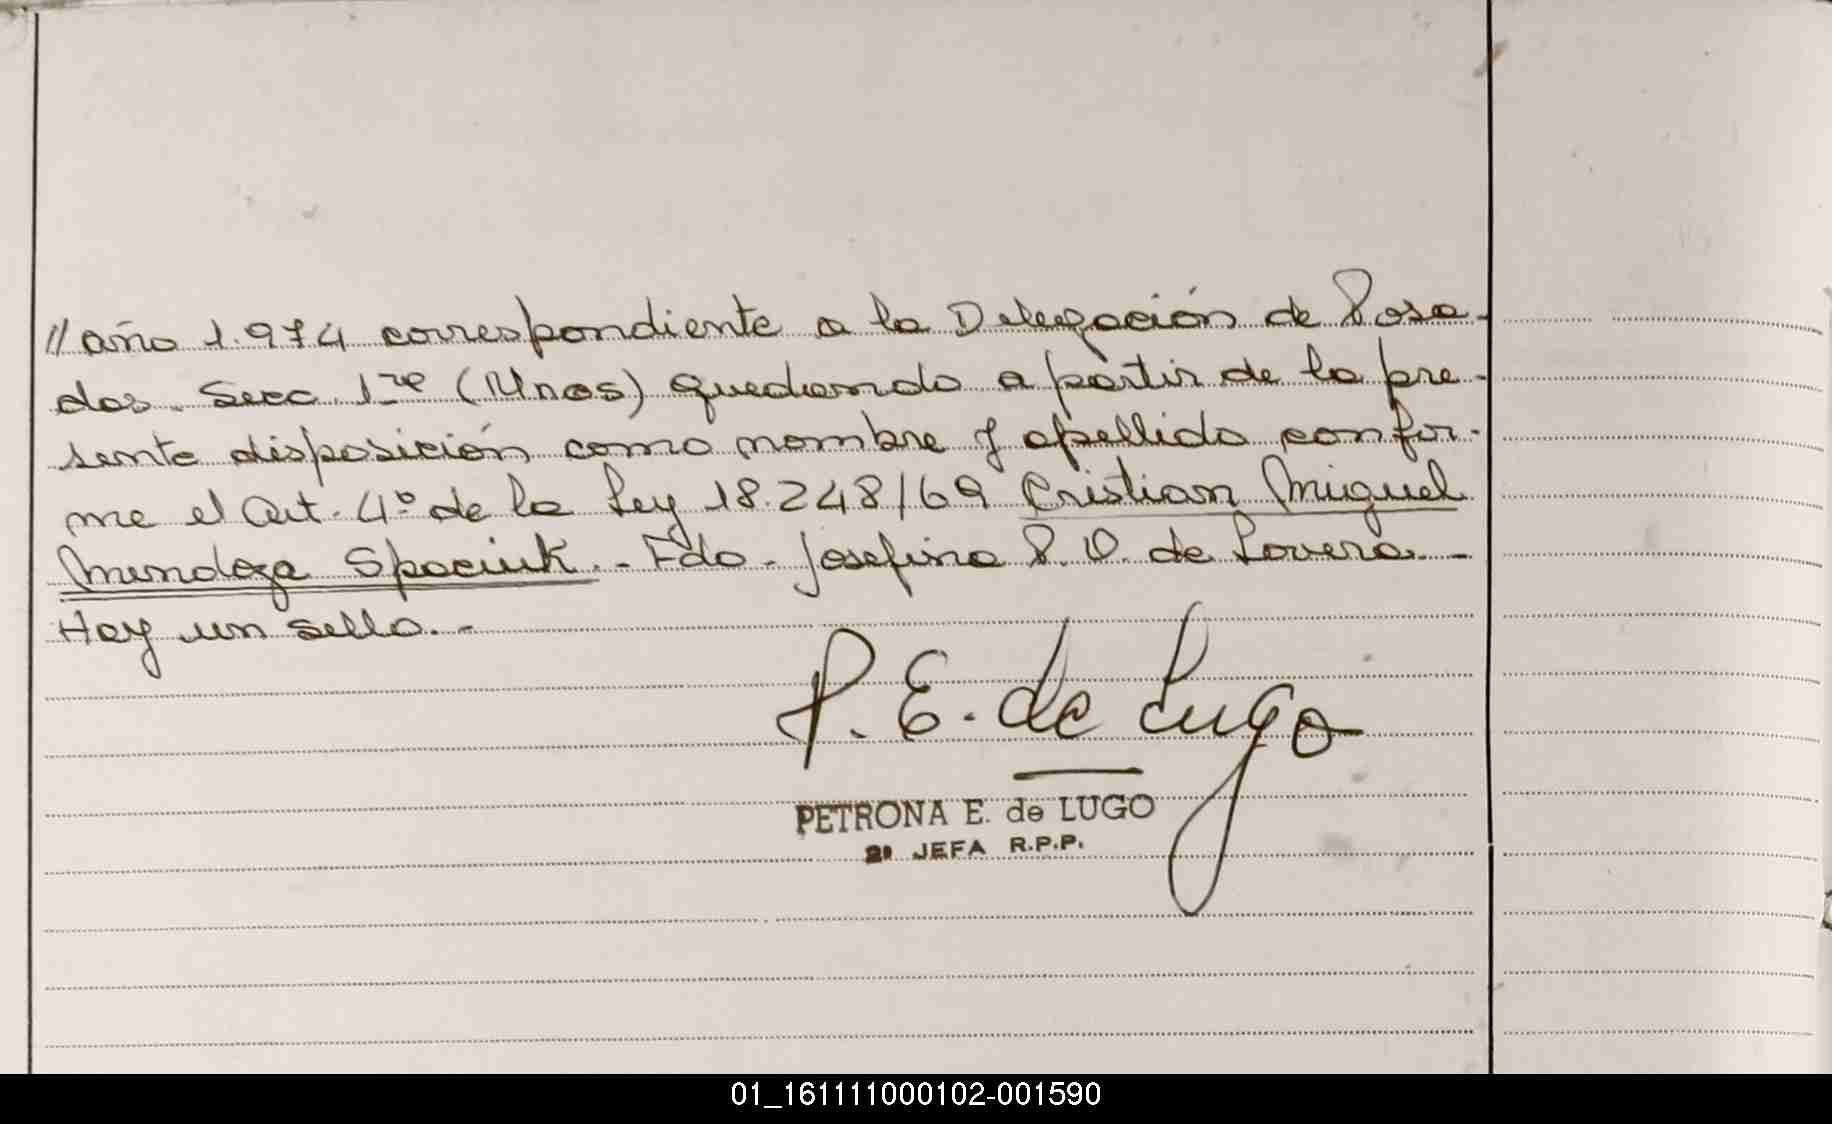 // año 1.974 correspondiente a la Delegación de Posa-
das. Secc. 1ra (Mnes) quedando a partir de la pre-
sente disposición como nombre y apellido confor-
me el Art. 4º de la Ley 18.248/69 Cristian Miguel
Mendoza Spaciuk.- Fdo. Josefina P. O. de Lovera.-
Hay un sello.-
P. E. de Lugo
PETRONA E. de LUGO
2ª JEFA R.P.P.
01_161111000102-001590